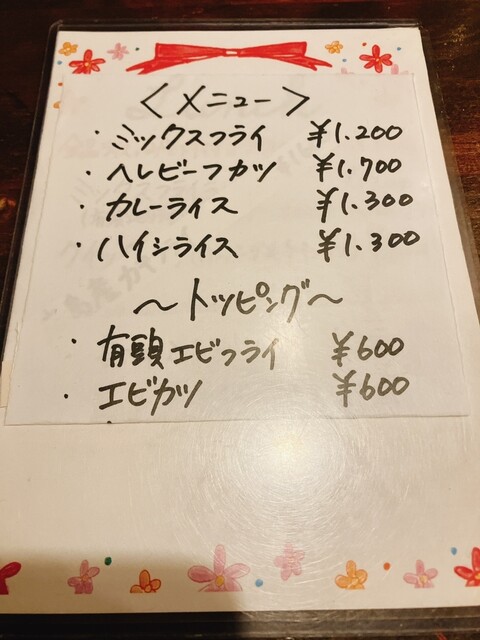 〈メニュー〉
・ミックスフライ ¥1.200
・ヘレビーフカツ ¥1.700
・カレーライス ¥1.300
・ハイシライス ¥1.300
〜トッピング〜
・有頭エビフライ ¥600
・エビカツ ¥600